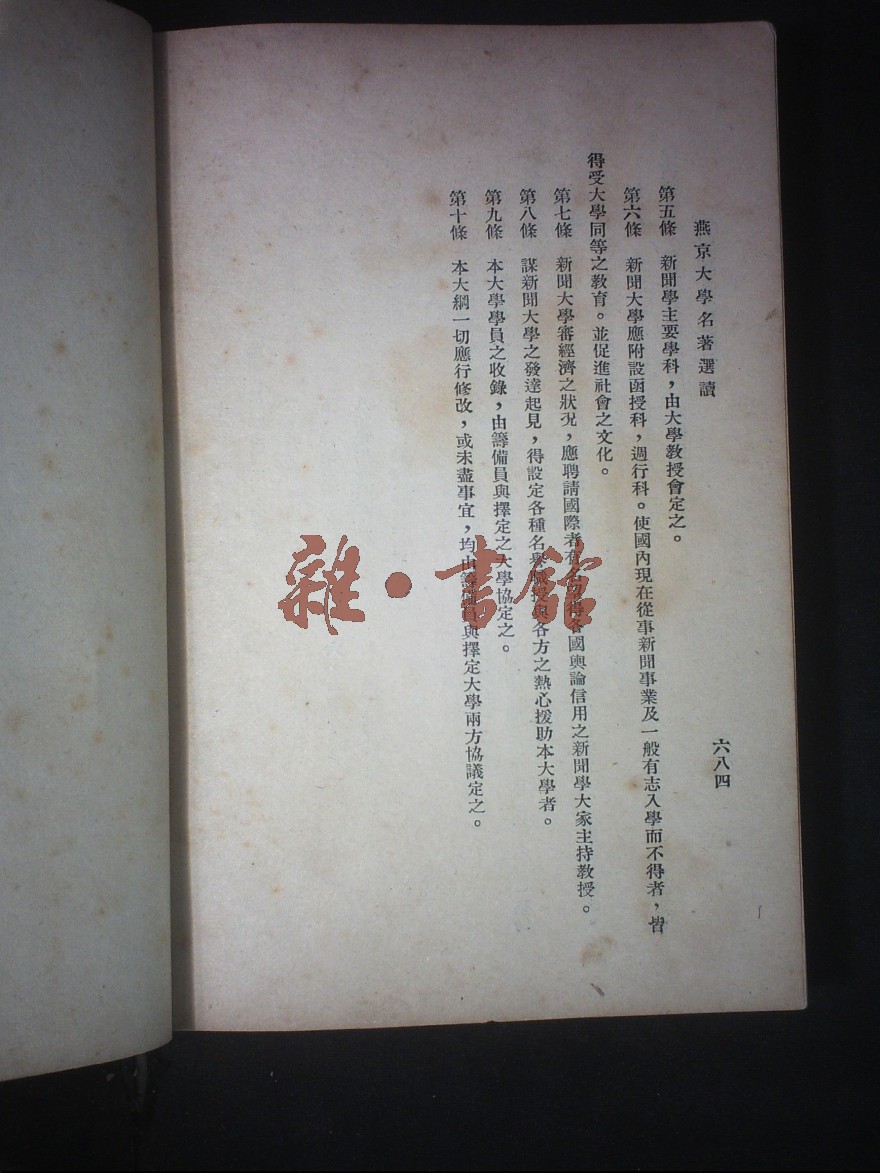 燕京大學名著選讀
六八四
第五條　新聞學主要學科，由大學教授會定之。
第六條　新聞大學應附設函授科，週行科。使國內現在從事新聞事業及一般有志入學而不得者，皆
得受大學同等之教育。並促進社會之文化。
第七條　新聞大學審經濟之狀況，應聘請國際著有　得各國輿論信用之新聞學大家主持教授。
第八條　謀新聞大學之發達起見，得設定各種名譽　授與各方之熱心援助本大學者。
第九條　本大學學員之收錄，由籌備員與擇定之大學協定之。
第十條　本大綱一切應行修改，或未盡事宜，均由籌備員與擇定大學兩方協議定之。
雜·書館